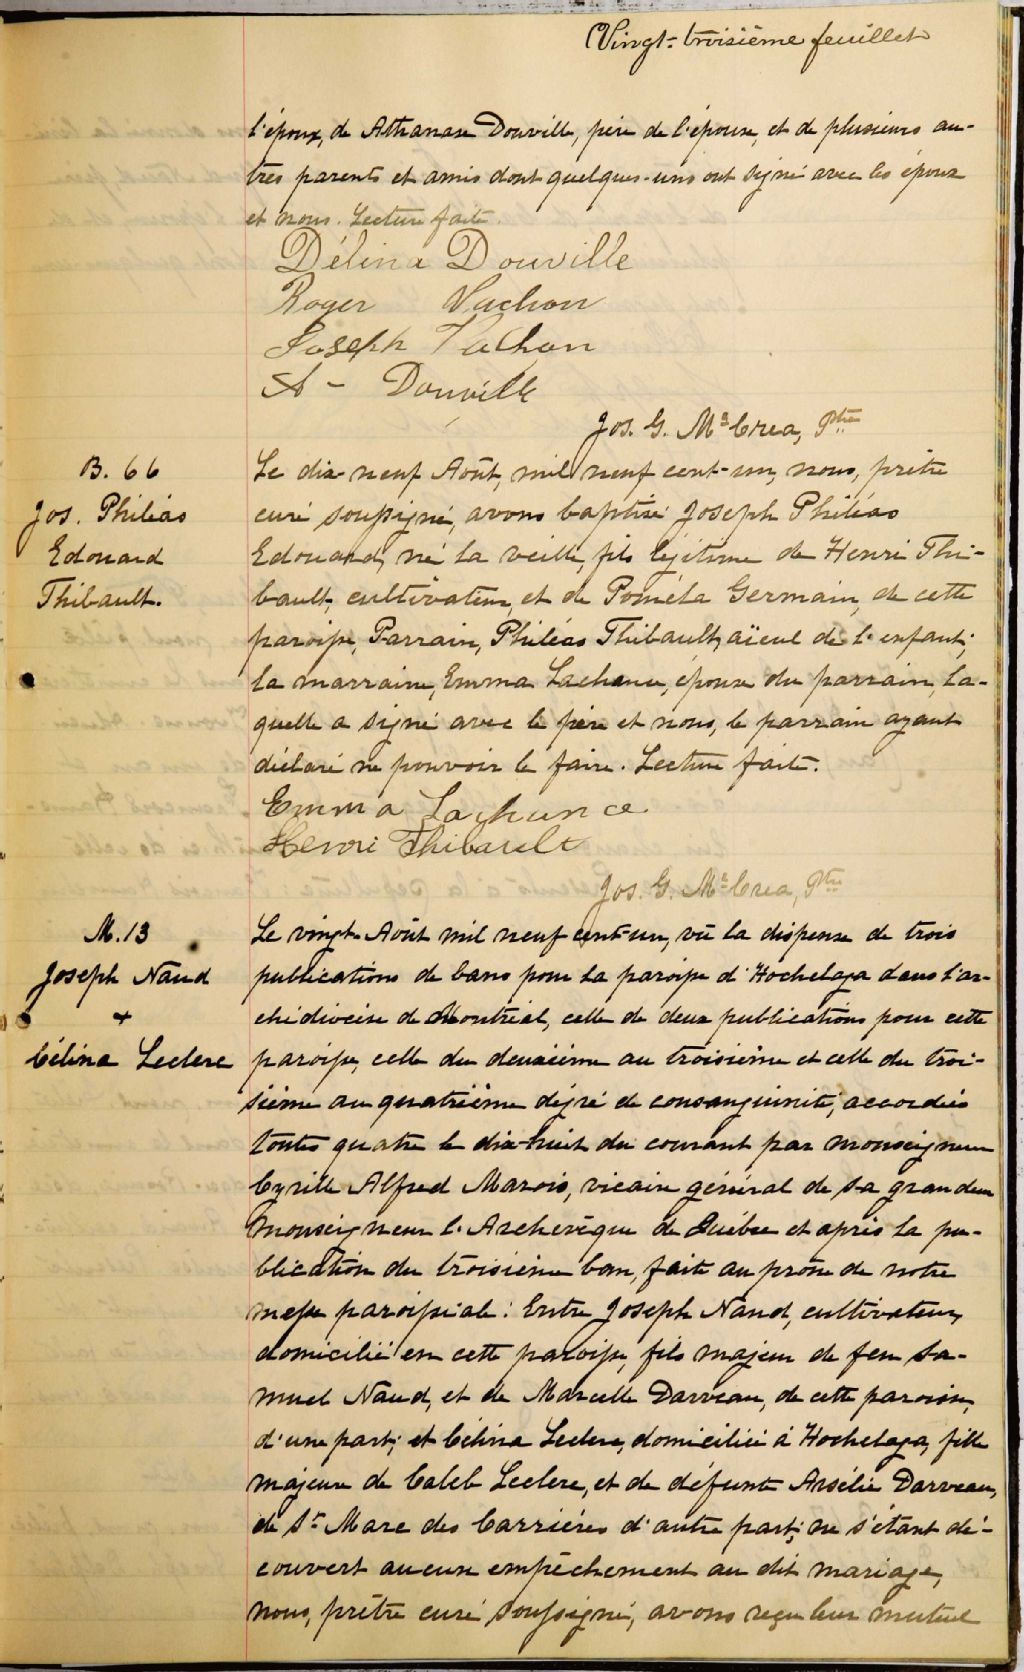 Vingt-troisième feuillet
l'époux, de Athanase Douville, père de l'épouse, et de plusieurs au-
tres parents et amis dont quelques-uns ont signé avec les époux
et nous. Lecture faite.
Délina Douville
Roger Vachon
Joseph Vachon
A - Douville
Jos. G. McCrea, Ptre
B. 66
Jos. Philéas
Edouard
Thibault.
Le dix-neuf Août, mil neuf cent-un, nous, prêtre
curé soussigné, avons baptisé Joseph Philéas
Edouard, né la veille, fils légitime de Henri Thi-
bault, cultivateur, et de Poméla Germain, de cette
paroisse, Parrain, Philéas Thibault, aïeul de l'enfant;
la marraine, Emma Lachance, épouse du parrain, la-
quelle a signé avec le père et nous, le parrain ayant
déclaré ne pouvoir le faire. Lecture faite.
Emma Lachance
Henri Thibault
Jos. G. McCrea, Ptre
M. 13
Joseph Naud
+
Célina Leclerc
Le vingt Août mil neuf cent-un, vû la dispense de trois
publications de bans pour la paroisse d'Hochelaga dans l'ar-
chidiocèse de Montréal, celle de deux publications pour cette
paroisse, celle du deuxième au troisième et celle du troi-
sième au quatrième dégré de consanguinité, accordés
toutes quatre le dix-huit du courant par monseigneur
Cyrille Alfred Marois, vicaire général de Sa grandeur
Monseigneur l'Archevêque de Québec et après la pu-
blication du troisième ban, faite au prône de notre
messe paroissiale: Entre Joseph Naud, cultivateur,
domicilié en cette paroisse, fils majeur de feu Sa-
muel Naud, et de Marcelle Darveau, de cette paroisse,
d'une part; et Célina Leclerc, domiciliée à Hochelaga, fille
majeure de Caleb Leclerc, et de défunte Arsélie Darveau,
de St Marc des Carrières d'autre part; ne s'étant dé-
couvert aucun empêchement au dit mariage,
nous, prêtre curé soussigné, avons reçu leur mutuel